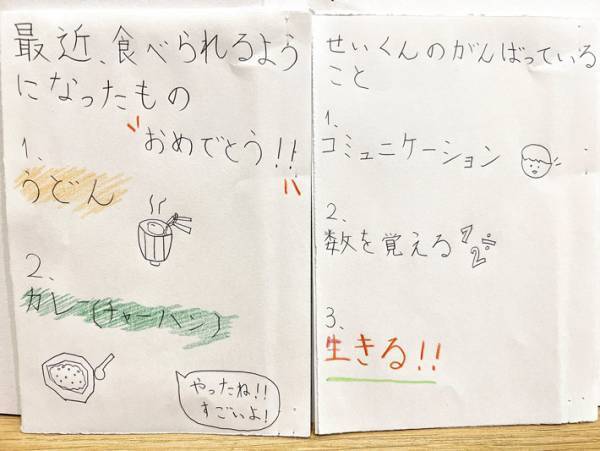 最近、食べられるよう
になったもの
おめでとう!!
1、
うどん
2、
カレー(チャーハン)
やったね!!
すごいよ!
せいくんのがんばっている
こと
1、
コミュニケーション
2、
数を覚える
1 2 ÷
3、
生きる!!